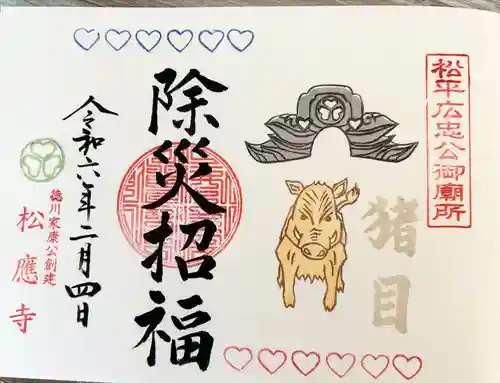 松平広忠公御廟所
猪目
除災招福
令和六年二月四日
徳川家康公創建
松應寺